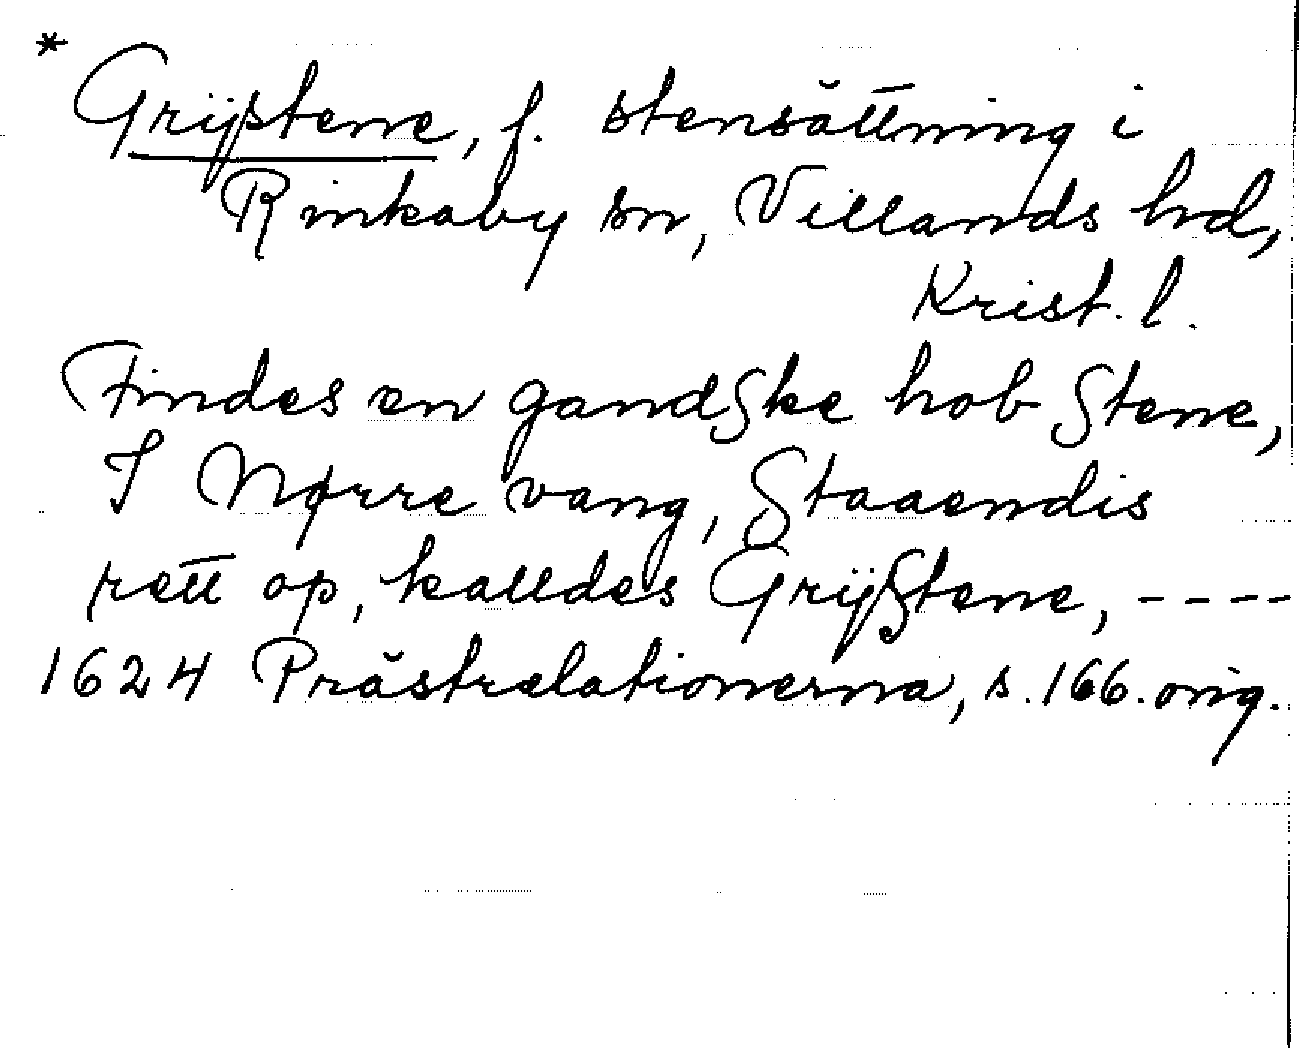 *
Grÿstene, f. stensättning i
Rinkaby sn, Villands hd,
Krist. l.
Findes en gandske hob Stene,
I Nørre vang, Staaendis
rett op, kalldes GrÿStene, ----
1624 Prästrelationerna, s. 166. orig.